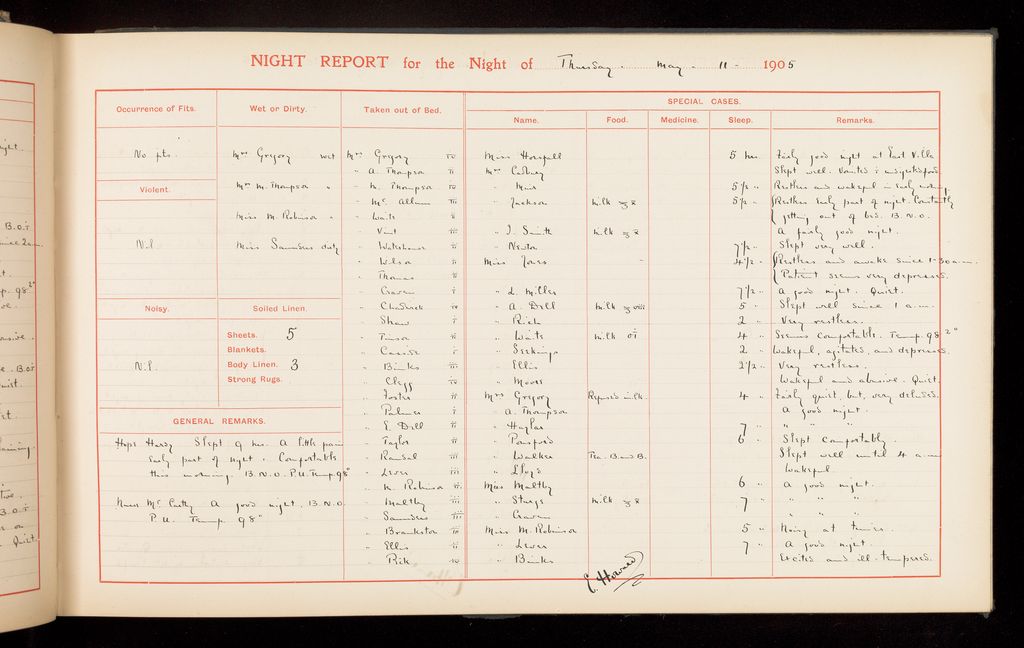 NIGHT REPORT for the Night of Thursday. May. 11 - 1905
Occurrence of Fits.
No fits.
Violent.
Nil
Noisy.
Nil.
Wet or Dirty.
Mrs Gregory wet
Mrs M. Thompson "
Miss M. Robinson "
Miss Saunders dirty
Soiled Linen.
Sheets. 5
Blankets.
Body Linen. 3
Strong Rugs.
GENERAL REMARKS.
Slept 9 hrs. A little pain
early part of night. Comfortable
this morning. B.N.O. P.U. Temp. 98°
Nurse McCarthy A good night. B.N.O.
P.U. Temp 98°
Taken out of Bed.
Mrs Gregory iv
" A. Thompson ii
" M. Thompson iv
" Mc Allum iii
" Waite ii
" Vint iii
" Waterhouse ii
" Wilson ii
" Thomas ii
" Craven i
" Chadwick iv
" Shaw i
" ii
" i
" Binks iii
" Clegg iv
" Foster ii
" Palmer i
" E. Dell iii
" Taylor ii
" Ransal iii
" Lever iii
" M. Robinson ii
" Maltby iii
" Saunders iii
" Brankston ii
" Ellis ii
" Rich iv
SPECIAL CASES.
Name. Food. Medicine. Sleep. Remarks.
Miss Horsfall 5 hrs. Fairly good night at East Villa
Mrs Cadney Slept well.
" 5½ " Restless and wakeful in early morning.
" Jackson Milk 5½ " Restless early part of night. Constantly
getting out of bed. B.N.O.
" J. Smith Milk A fairly good night.
" Newton 7½ " Slept very well.
Miss Jones 4½ " Restless and awake since 1-30 a.m.
Patient seems very depressed.
" L. Miller 7½ " A good night. Quiet.
" A. Dell Milk 5 " Slept well since 1 a.m.
" Rich 2 " Very restless.
" Waite Milk 4 " Seems comfortable. Temp. 98.2°
" Seekings 2 " Wakeful, agitated, and depressed.
" Ellis 2½ " Very restless.
" Moore Wakeful and abusive. Quiet.
Mrs Gregory Refused milk. 4 " Fairly quiet, but, very deluded.
" A. Thompson A good night.
" Haylar 7 " " " "
" Ponsford 6 " Slept comfortably.
" Walker Tea. B. and B. Slept well until 4 a.m.
" Lloyd Wakeful.
Miss Maltby 6 " A good night.
" Sturge Milk 7 " " " "
" Craven " " "
Miss M. Robinson 5 " Noisy at times.
" Lever 7 " A good night.
" Binks Excited and ill-tempered.
E. Howard